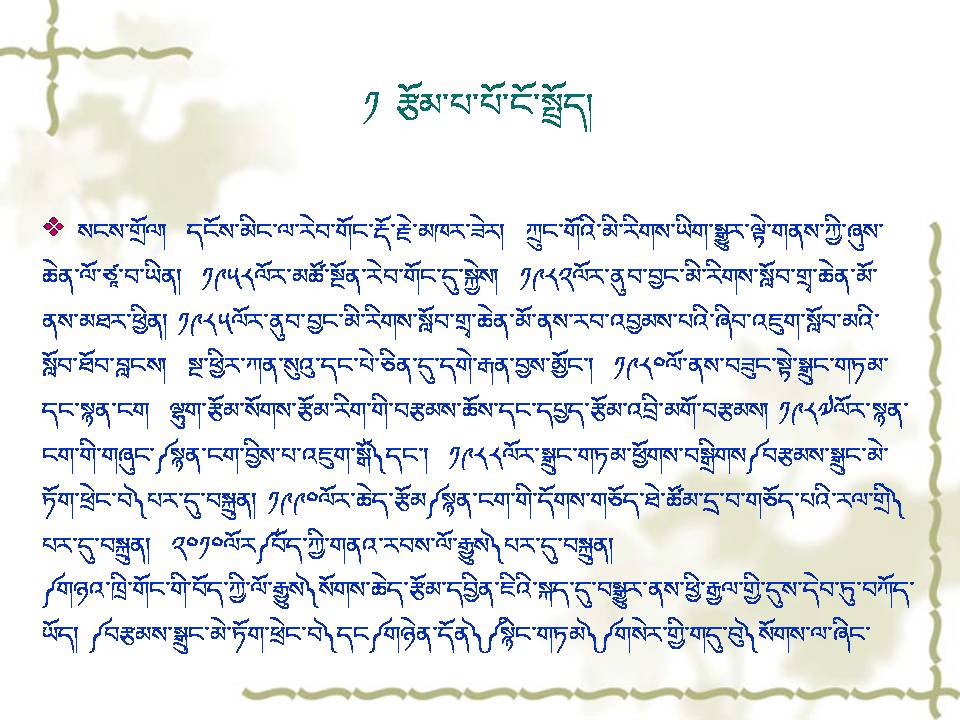 ༡ རྩོམ་པ་པོ་ངོ་སྤྲོད།
སངས་གྲོལ། དངོས་མིང་ལ་རེབ་གོང་རྡོ་རྗེ་མཁར་ཟེར། ཀྲུང་གོའི་མི་རིགས་ཡིག་སྒྱུར་ལྟེ་གནས་ཀྱི་ཞུས་
ཆེན་ལོ་ཙཱ་བ་ཡིན། ༡༩༥༨ལོར་མཚོ་སྔོན་རེབ་གོང་དུ་སྐྱེས། ༡༩༨༢ལོར་ནུབ་བྱང་མི་རིགས་སློབ་གྲྭ་ཆེན་མོ་
ནས་མཐར་ཕྱིན། ༡༩༨༥ལོར་ནུབ་བྱང་མི་རིགས་སློབ་གྲྭ་ཆེན་མོ་ནས་རབ་འབྱམས་པའི་ཞིབ་འཇུག་སློབ་མའི་
སློབ་ཐོབ་བླངས། སྔ་ཕྱིར་ཀན་སུའུ་དང་པེ་ཅིན་དུ་དགེ་རྒན་བྱས་མྱོང་། ༡༩༨༠ལོ་ནས་བཟུང་སྟེ་སྒྲུང་གཏམ་
དང་སྙན་ངག ལྷུག་རྩོམ་སོགས་རྩོམ་རིག་གི་བརྩམས་ཆོས་དང་དཔྱད་རྩོམ་འབྲི་མགོ་བརྩམས། ༡༩༨༧ལོར་སྙན་
ངག་གི་གཞུང་༼སྙན་ངག་བྱིས་པ་འཇུག་སྒོ༽དང་། ༡༩༨༨ལོར་སྒྲུང་གཏམ་ཕྱོགས་བསྒྲིགས༼བརྩམས་སྒྲུང་མེ་
ཏོག་ཕྲེང་བ༽པར་དུ་བསྐྲུན། ༡༩༩༠ལོར་ཆེད་རྩོམ༼སྙན་ངག་གི་དོགས་གཅོད་ཐེ་ཚོམ་དྲ་བ་གཅོད་པའི་རལ་གྲི༽
པར་དུ་བསྐྲུན། ༢༠༡༠ལོར༼བོད་ཀྱི་གནའ་རབས་ལོ་རྒྱུས༽པར་དུ་བསྐྲུན།
༼གཉའ་ཁྲི་གོང་གི་བོད་ཀྱི་ལོ་རྒྱུས༽སོགས་ཆེད་རྩོམ་དབྱིན་ཇིའི་སྐད་དུ་བསྒྱུར་ནས་ཕྱི་རྒྱལ་གྱི་དུས་དེབ་ཏུ་བཀོད་
ཡོད། ༼བརྩམས་སྒྲུང་མེ་ཏོག་ཕྲེང་བ༽དང༼གཉེན་དོན༽༼སྙིང་གཏམ༽༼གསེར་གྱི་གདུ་བུ༽སོགས་ལ་ཞིང་